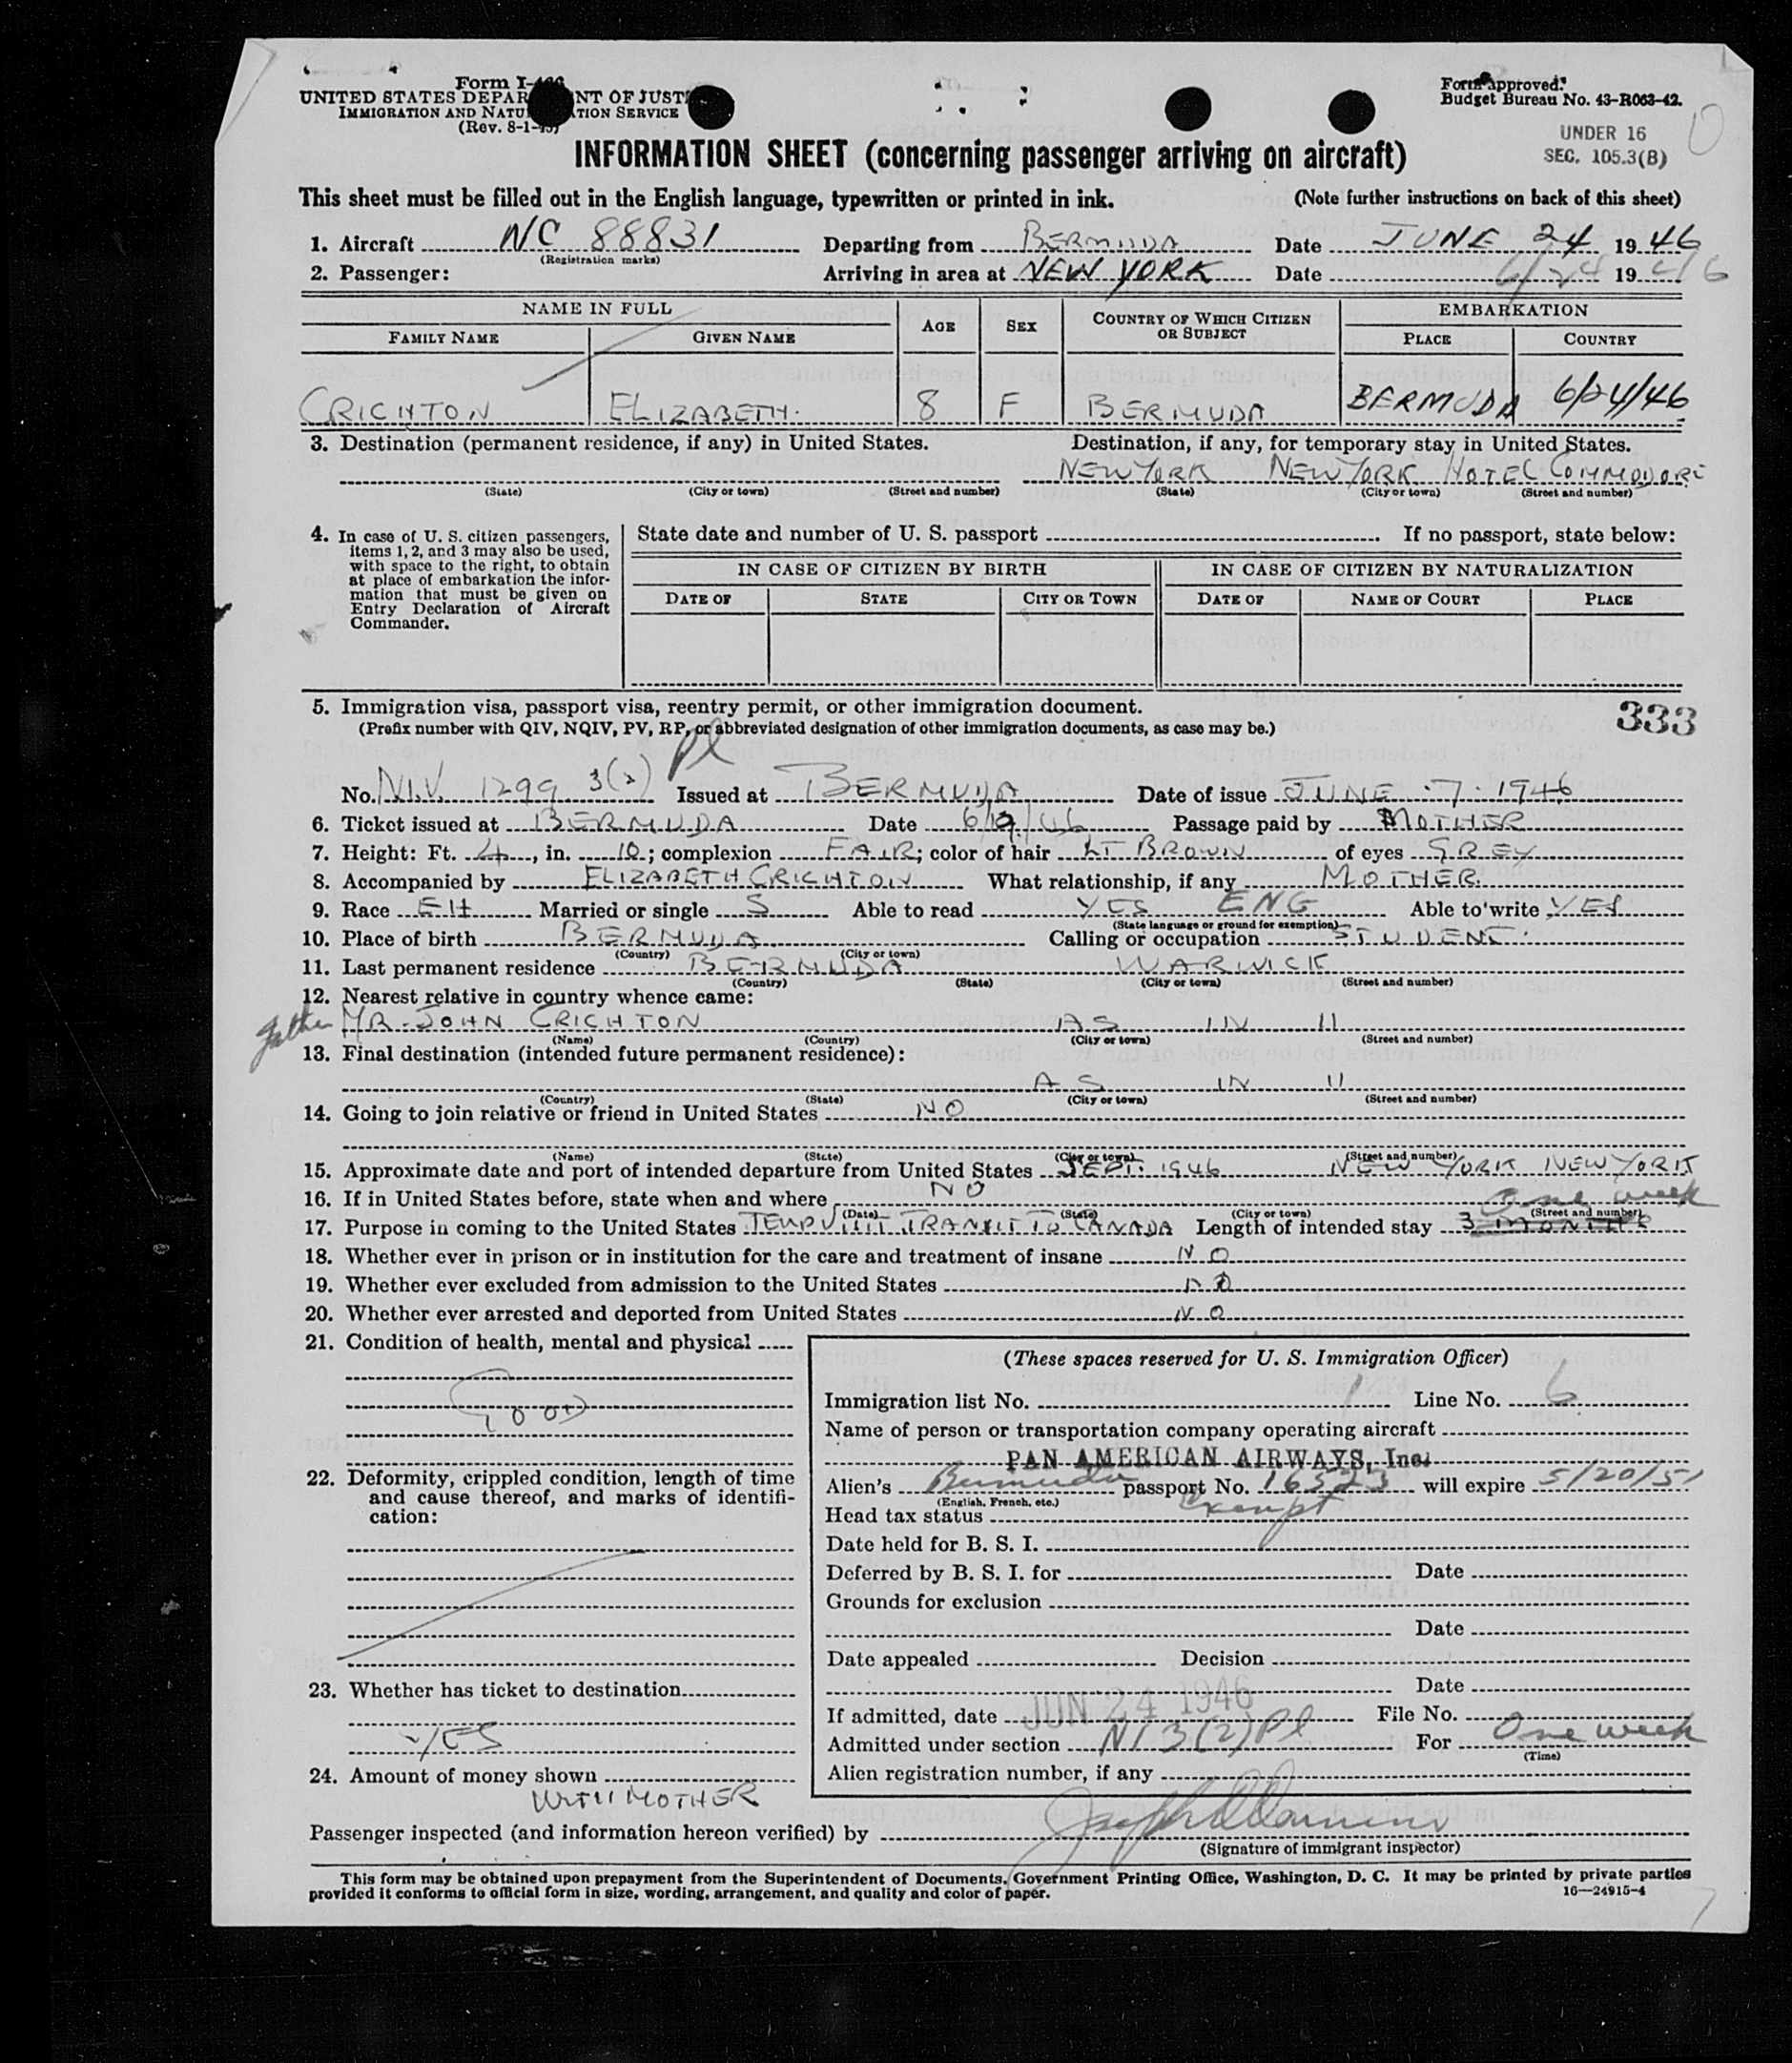 Form I-466
UNITED STATES DEPARTMENT OF JUSTICE
IMMIGRATION AND NATURALIZATION SERVICE
(Rev. 8-1-45)
Form approved.
Budget Bureau No. 43-R063-42.
UNDER 16
SEC. 105.3(B)
INFORMATION SHEET (concerning passenger arriving on aircraft)
This sheet must be filled out in the English language, typewritten or printed in ink. (Note further instructions on back of this sheet)
1. Aircraft NC 88831 Departing from BERMUDA Date JUNE 24 1946
(Registration marks)
2. Passenger: Arriving in area at NEW YORK Date 6/24 1946
NAME IN FULL AGE SEX COUNTRY OF WHICH CITIZEN OR SUBJECT EMBARKATION
FAMILY NAME GIVEN NAME PLACE COUNTRY
CRICHTON ELIZABETH. 8 F BERMUDA BERMUDA 6/24/46
3. Destination (permanent residence, if any) in United States. Destination, if any, for temporary stay in United States.
NEW YORK NEW YORK HOTEL COMMODORE
(State) (City or town) (Street and number) (State) (City or town) (Street and number)
4. In case of U. S. citizen passengers, items 1, 2, and 3 may also be used, with space to the right, to obtain at place of embarkation the information that must be given on Entry Declaration of Aircraft Commander.
State date and number of U. S. passport If no passport, state below:
IN CASE OF CITIZEN BY BIRTH IN CASE OF CITIZEN BY NATURALIZATION
DATE OF STATE CITY OR TOWN DATE OF NAME OF COURT PLACE
5. Immigration visa, passport visa, reentry permit, or other immigration document.
333
(Prefix number with QIV, NQIV, PV, RP, or abbreviated designation of other immigration documents, as case may be.)
Pl
No. N.I.V. 1299 3(2) Issued at BERMUDA Date of issue JUNE 7. 1946
6. Ticket issued at BERMUDA Date 6/19/46 Passage paid by MOTHER
7. Height: Ft. 4, in. 10; complexion FAIR; color of hair LT BROWN of eyes GREY
8. Accompanied by ELIZABETH CRICHTON What relationship, if any MOTHER.
9. Race EH Married or single S Able to read YES ENG Able to write YES
(State language or ground for exemption)
10. Place of birth BERMUDA Calling or occupation STUDENT.
(Country) (City or town)
11. Last permanent residence BERMUDA WARWICK
(Country) (State) (City or town) (Street and number)
12. Nearest relative in country whence came:
father MR. JOHN CRICHTON AS IN 11
(Name) (Country) (City or town) (Street and number)
13. Final destination (intended future permanent residence):
AS IN 11
(Country) (State) (City or town) (Street and number)
14. Going to join relative or friend in United States NO
(Name) (State) (City or town) (Street and number)
15. Approximate date and port of intended departure from United States SEPT. 1946 NEW YORK NEW YORK
16. If in United States before, state when and where NO One week
(Date) (State) (City or town) (Street and number)
17. Purpose in coming to the United States TEMP VISIT TRANSIT TO CANADA Length of intended stay 3 MONTHS
18. Whether ever in prison or in institution for the care and treatment of insane NO
19. Whether ever excluded from admission to the United States NO
20. Whether ever arrested and deported from United States NO
21. Condition of health, mental and physical
GOOD
22. Deformity, crippled condition, length of time and cause thereof, and marks of identification:
23. Whether has ticket to destination
YES
24. Amount of money shown
WITH MOTHER
(These spaces reserved for U. S. Immigration Officer)
Immigration list No. 1 Line No. 6
Name of person or transportation company operating aircraft
PAN AMERICAN AIRWAYS, Inc.
Alien's Bermuda passport No. 16523 will expire 5/20/51
(English, French, etc.)
Head tax status exempt
Date held for B. S. I.
Deferred by B. S. I. for Date
Grounds for exclusion
Date
Date appealed Decision
Date
If admitted, date JUN 24 1946 File No.
Admitted under section NI 3(2) Pl For One week
(Time)
Alien registration number, if any
Passenger inspected (and information hereon verified) by
(Signature of immigrant inspector)
This form may be obtained upon prepayment from the Superintendent of Documents, Government Printing Office, Washington, D. C. It may be printed by private parties
provided it conforms to official form in size, wording, arrangement, and quality and color of paper. 16—24915-4